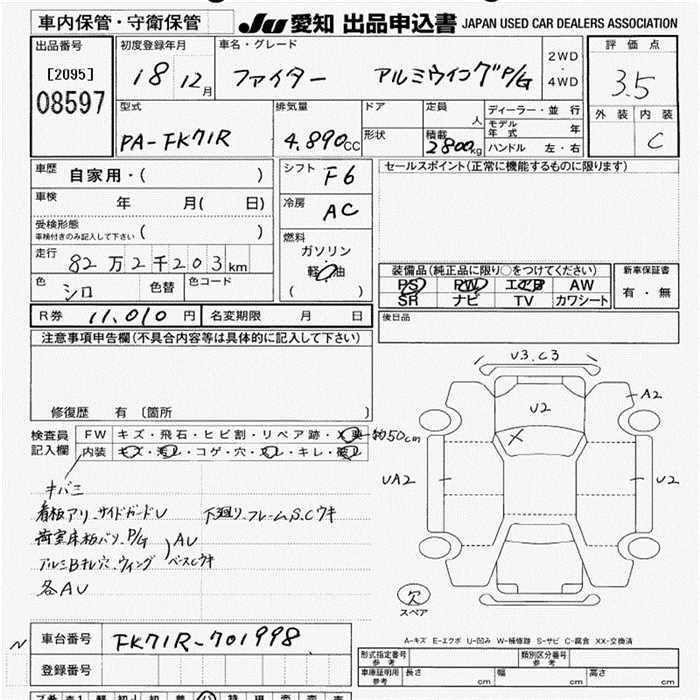 車内保管・守衛保管
JU 愛知 出品申込書 JAPAN USED CAR DEALERS ASSOCIATION
出品番号
[2095]
08597
初度登録年月
18 12月
車名・グレード
ファイター アルミウイングP/G
2WD
・
4WD
評価点
3.5
外装 内装
C
型式
PA-FK71R
排気量
4.890cc
ドア
形状
定員
人
積載
2800kg
ディーラー・並行
モデル年式 年
ハンドル 左・右
車歴
自家用・( )
車検
年 月( 日)
受検形態
車検付きのみ記入して下さい ( )
走行
82万2千203km
色
シロ
色替
色コード
シフト
F6
冷房
AC
燃料
ガソリン
・
軽油
( )
セールスポイント(正常に機能するものに限ります)
装備品(純正品に限り○をつけてください)
PS PW エアB AW
SR ナビ TV カワシート
新車保証書
有・無
後日品
R券 11,010円
名変期限 月 日
注意事項申告欄(不具合内容等は具体的に記入して下さい)
修復歴 有 〔箇所 〕
検査員
記入欄
FW キズ・飛石・ヒビ割・リペア跡・X要 約50cm
内装 キズ・汚レ・コゲ・穴・スレ・キレ・破レ
キバミ
看板アリ.サイドガードU 下廻り.フレームS.Cウキ
荷室床板バツ.P/G
アルミBキレ穴.ウィング
AU
ベースCウキ
各AU
V3.C3
U2
A2
X
UA2
U2
欠
スペア
A-キズ E-エクボ U-凹み W-補修跡 S-サビ C-腐食 XX-交換済
N
車台番号 FK71R-701998
登録番号
形式指定番号
参考
類別区分番号
参考
車庫証明用
参考
長さ cm
幅 cm
高さ cm